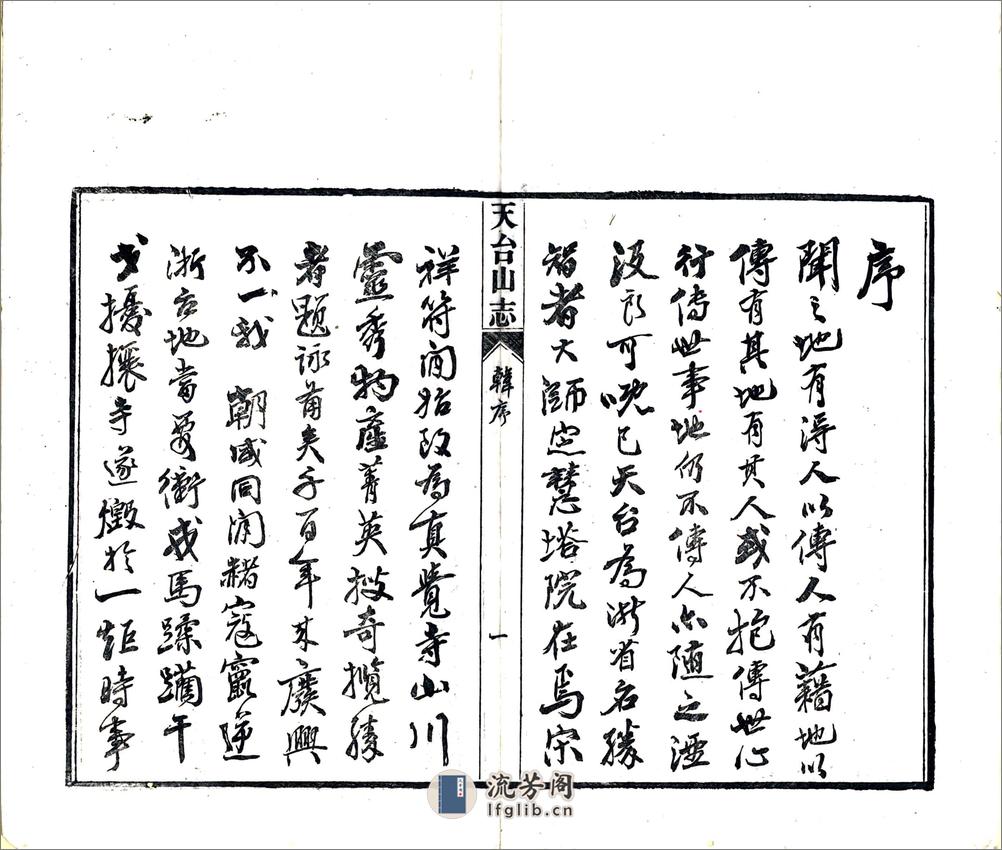 序
聞之地有得人以傳人有藉地以
傳有其地有其人或不抱傳世心
行傳世事地仍不傳人亦隨之湮
沒良可嘅已天台為浙省名勝
智者大師定慧塔院在焉宋
天台山志
韓序
一
祥符間始改為真覺寺山川
靈秀物產菁英搜奇攬勝
者題詠甫矣千百年來廢興
不一我 朝咸同間赭寇竄逆
浙台地當要衝戎馬蹂躪干
戈擾攘寺遂燬於一炬時事
流芳阁
lfglib.cn